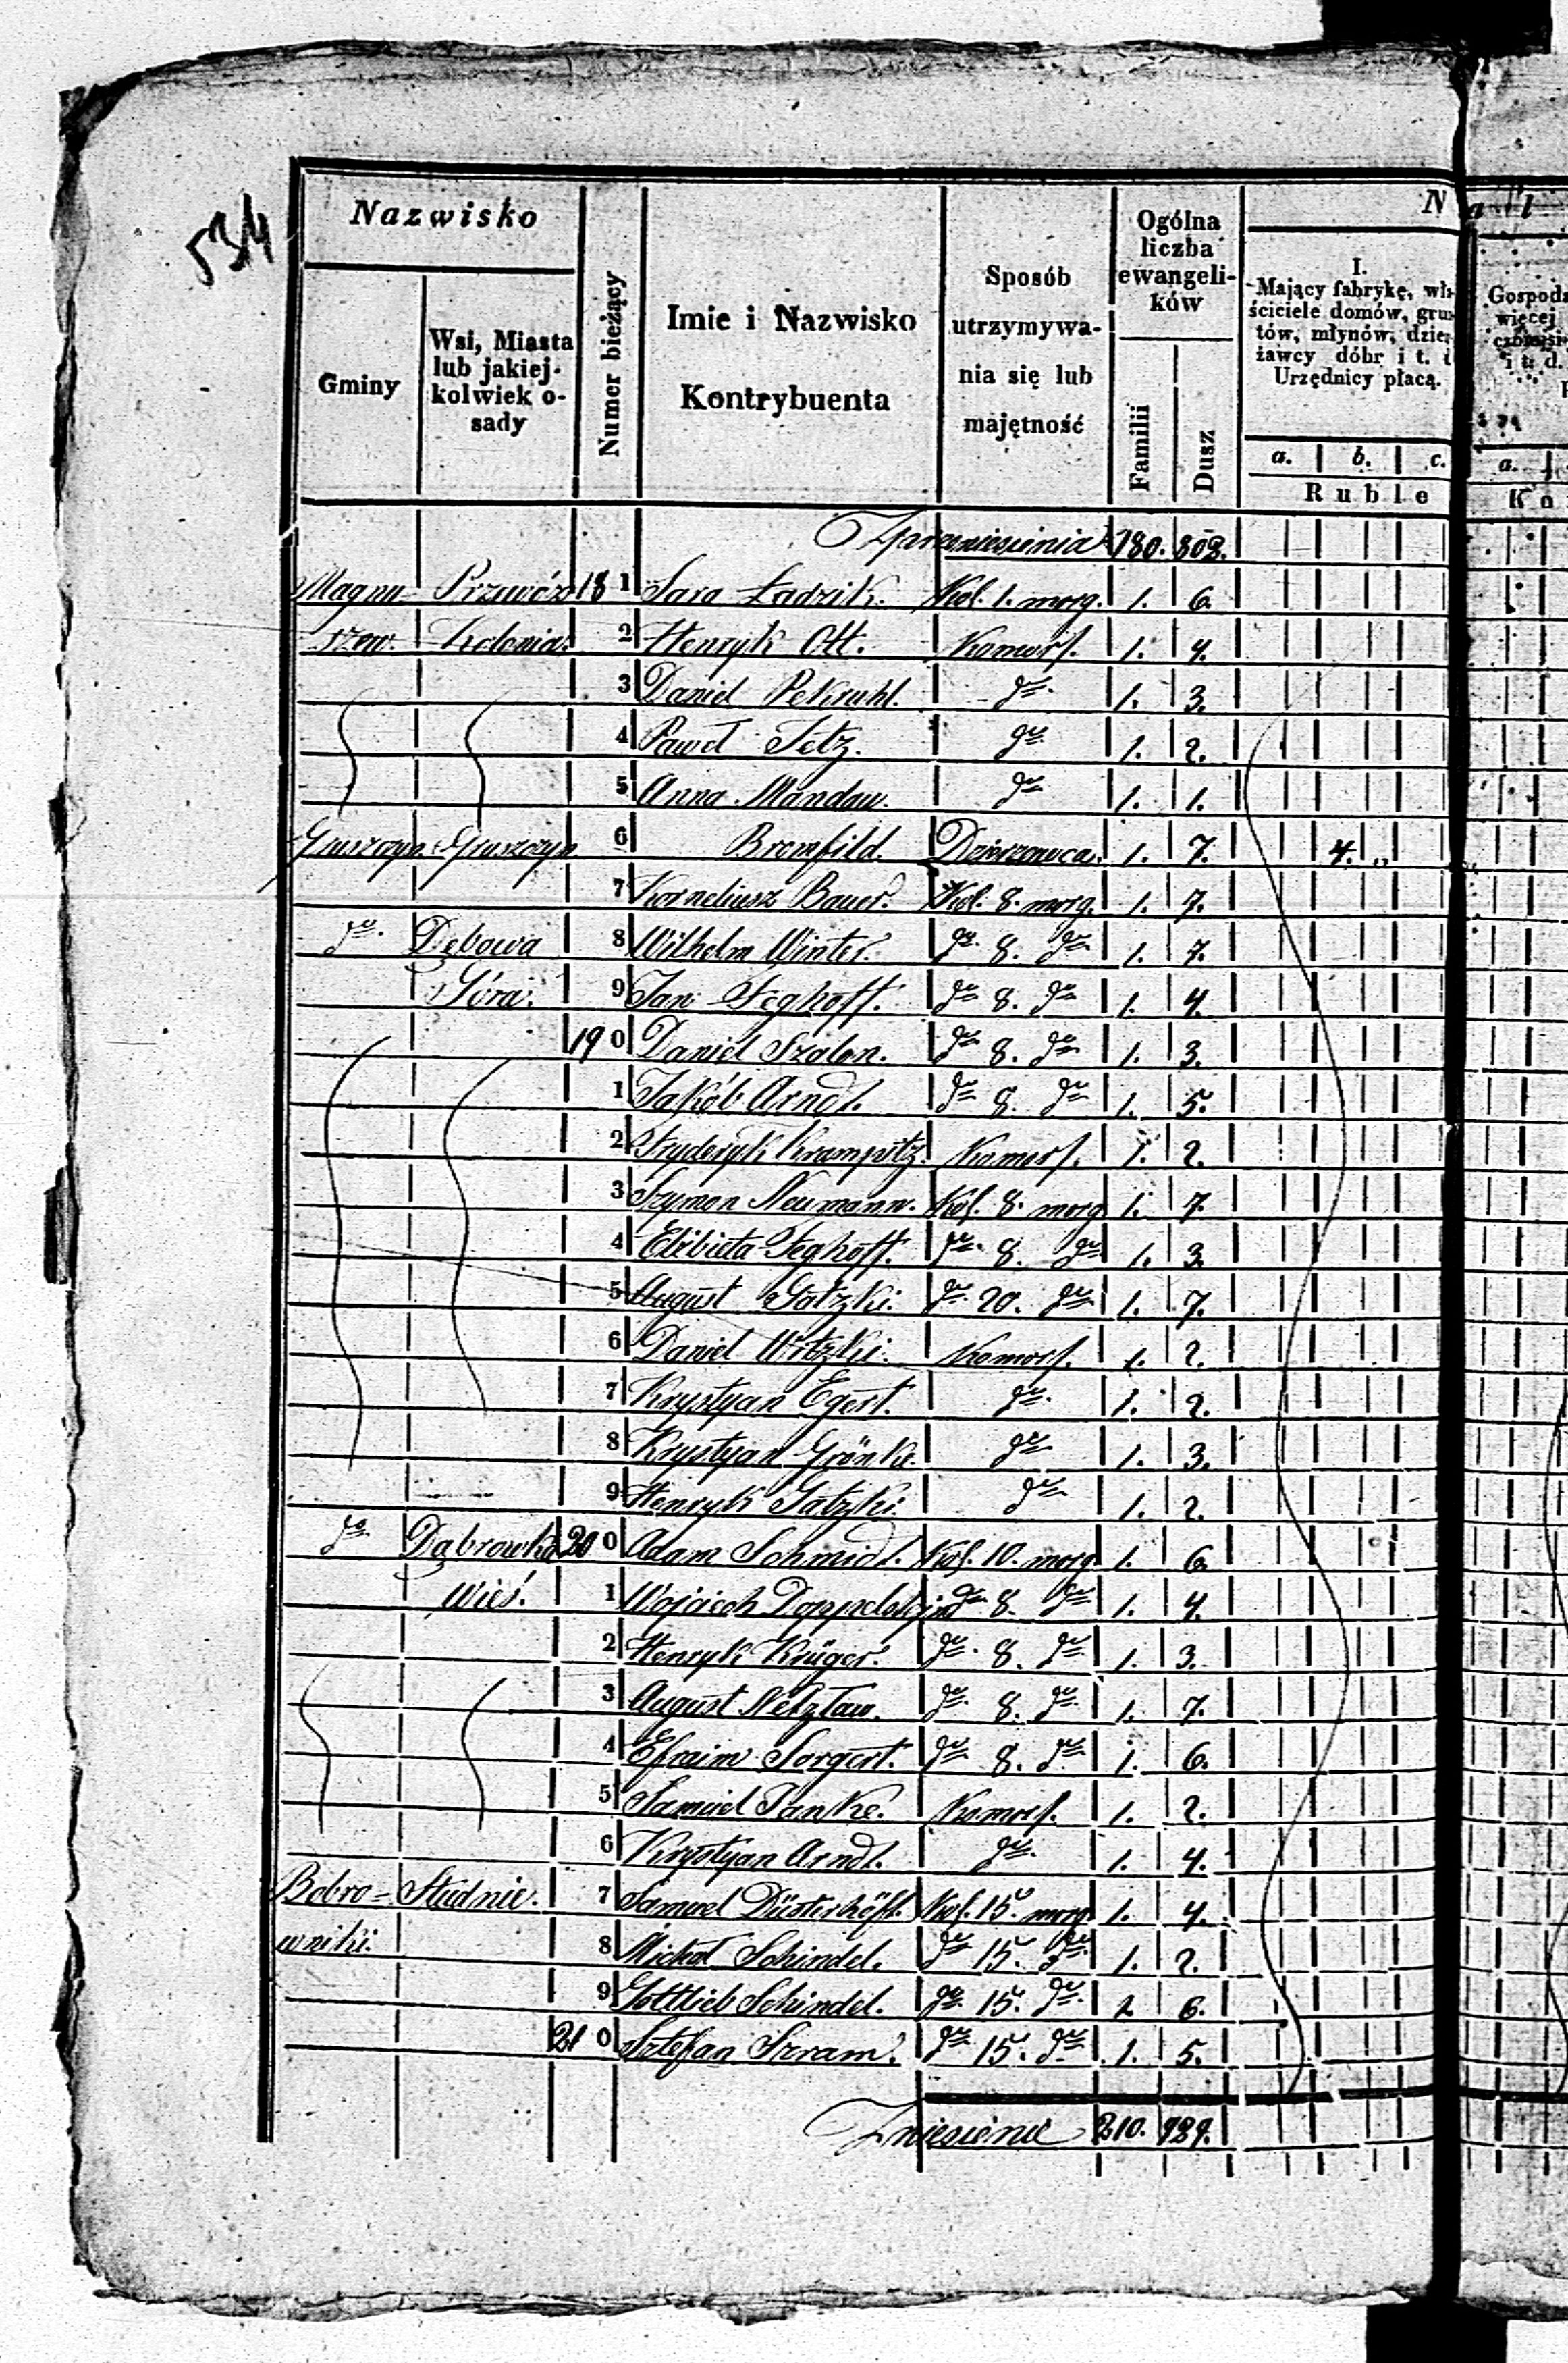 534
Nazwisko
Gminy
Wsi, Miasta lub jakiej-kolwiek o-sady
Numer bieżący
Imie i Nazwisko Kontrybuenta
Sposób utrzymywa-nia się lub majętność
Ogólna liczba ewangeli-ków
Familii
Dusz
N a l
I. Mający fabrykę, wła-ściciele domów, grun-tów, młynów, dzier-żawcy dóbr i t. d. Urzędnicy płacą.
a. b. c.
Ruble
Gospoda
więcej
i t. d.
a.
Ko
Z przeniesienia 180. 802.
Magnu- Przewóz 18 1 Sara Ładzik. Kol. 1. morg. 1. 6.
szew. Kolonia. 2 Henryk Ott. Komor. 1. 4.
3 Daniel Pekruhl. dto 1. 3.
4 Paweł Jetz. dto 1. 2.
5 Anna Mandau. dto 1. 1.
Gruszczyn Gruszczyn 6 Bromfild. Dzierzawca. 1. 7. 4. "
7 Korneliusz Bauer. Kol. 8. morg. 1. 7.
dto Dębowa 8 Wilhelm Winter. dto 8. dto 1. 7.
Góra. 9 Jan Feghoff. dto 8. dto 1. 4.
19 0 Daniel Szalon. dto 8. dto 1. 3.
1 Jakób Arndt. dto 8. dto 1. 5.
2 Fryderyk Krampitz. Komor. 1. 2.
3 Szymon Neumann. Kol. 8. morg 1. 7.
4 Elżbieta Feghoff. dto 8. dto 1. 3.
5 August Gatzki. dto 20. dto 1. 7.
6 Daniel Witzki. Komor. 1. 2.
7 Krystyan Egert. dto 1. 2.
8 Krystyan Grönke. dto 1. 3.
9 Henryk Gatzki. dto 1. 2.
dto Dąbrowka 20 0 Adam Schmidt. Kol. 10. morg 1. 6.
Wieś. 1 Wojciech dto 8. dto 1. 4.
2 Henryk Krüger. dto 8. dto 1. 3.
3 August Netzlaw. dto 8. dto 1. 7.
4 Efraim Sorgert. dto 8. dto 1. 6.
5 Samuel Janke. Komor. 1. 2.
6 Krystyan Arndt. dto 1. 4.
Bobro- Studnie. 7 Samuel Düsterhöft. Kol. 15. morg 1. 4.
wniki. 8 Michał Schindel. dto 15. dto 1. 2.
9 Gottlieb Schindel. dto 15. dto 2 6.
21 0 Sztefan Szram. dto 15. dto 1. 5.
Zniesienie 210. 929.